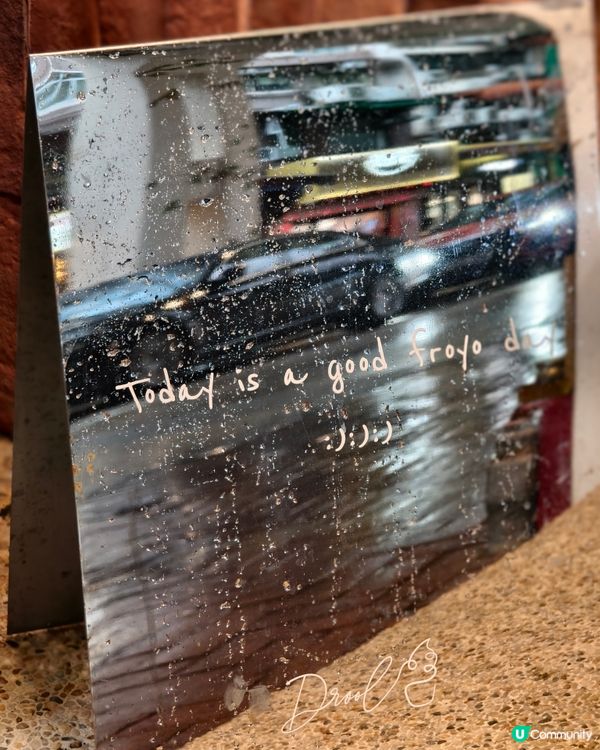 Today is a good froyo day
:):):)
Drool
U Community